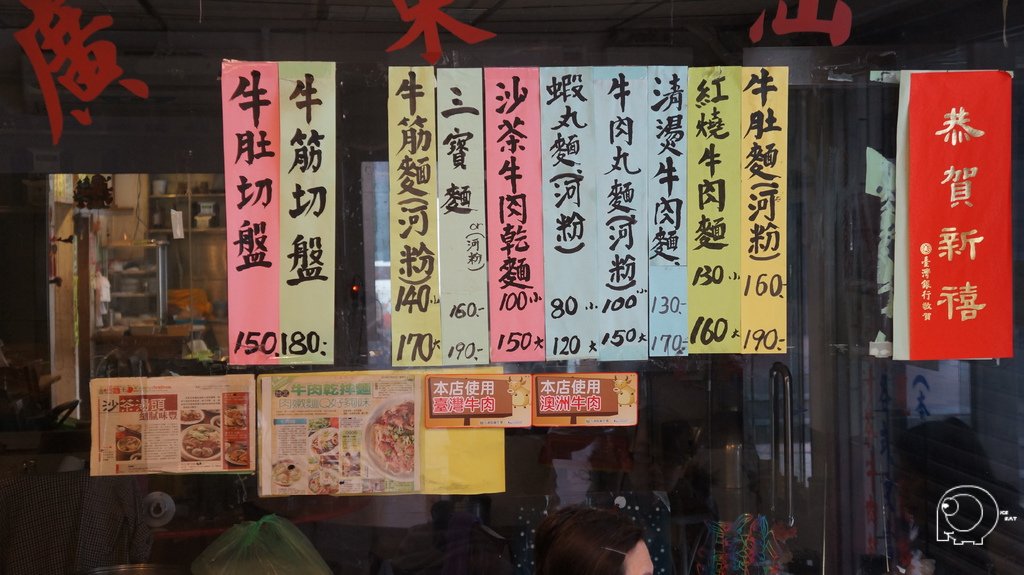 廣東汕
牛肚麵(河粉) 160.- 190.-
紅燒牛肉麵 130小 160大
清燙牛肉麵 130.- 170.-
牛肉丸麵(河粉) 100小 150大
蝦丸麵(河粉) 80小 120大
沙茶牛肉乾麵 100小 150大
三寶麵 or(河粉) 160.- 190.-
牛筋麵(河粉) 140小 170大
牛筋切盤 180.-
牛肚切盤 150.
恭賀新禧
臺灣銀行敬賀
沙茶湯頭
牛肉乾拌麵
本店使用
臺灣牛肉
本店使用
澳洲牛肉
ICE
EAT